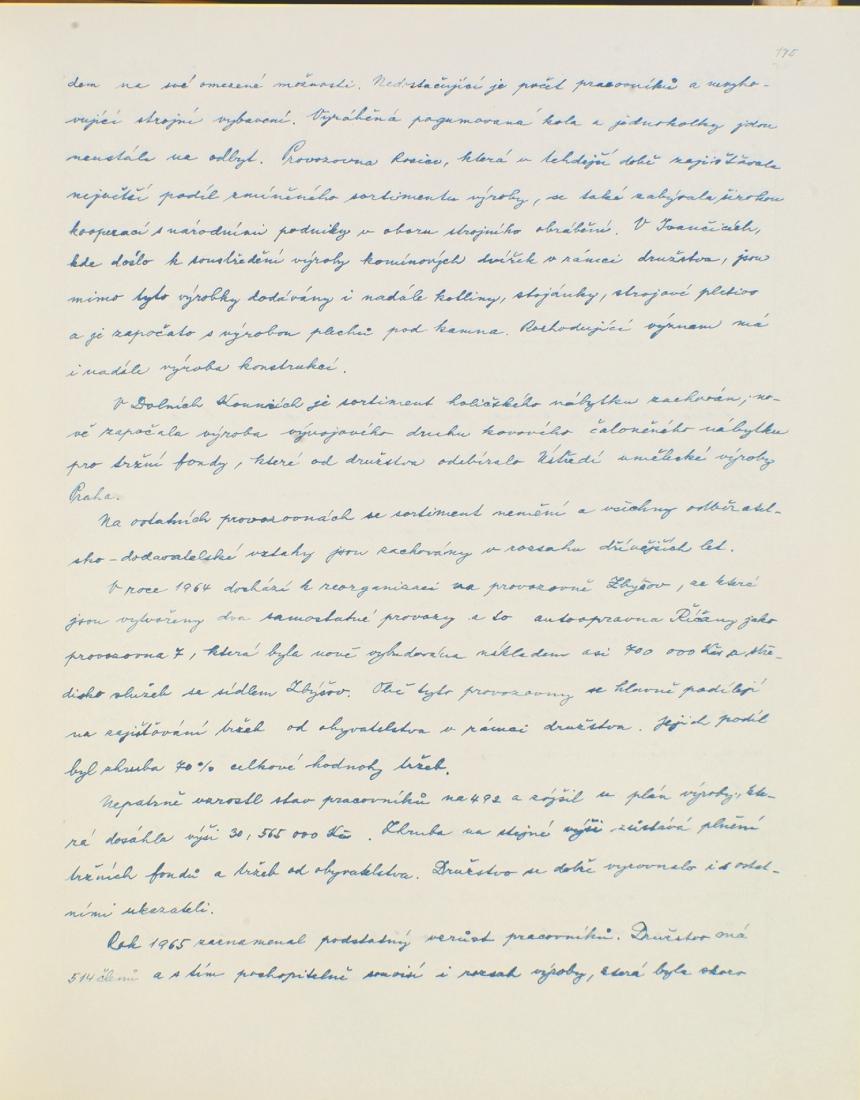 195
dem na své omezené možnosti. Nedostačující je počet pracovníků a nevyho-
vující strojní vybavení. Vyráběná pogumovaná kola a jednokolky jdou
neustále na odbyt. Provozovna Rosice, která v tehdejší době zajišťovala
největší podíl zmíněného sortimentu výroby, se také zabývala širokou
kooperací s národními podniky v oboru strojního obrábění. V Ivančicích,
kde došlo k soustředění výroby komínových dvířek v rámci družstva, jsou
mimo tyto výrobky dodávány i nadále kotliny, stojánky, strojové pletivo
a je započato s výrobou plechů pod kamna. Rozhodující význam má
i nadále výroba konstrukcí.
V Dolních Kounicích je sortiment holičského nábytku zachován, no-
vě započala výroba vývojového druhu kovového čalouněného nábytku
pro tržní fondy, které od družstva odebíralo Ústředí umělecké výroby
Praha.
Na ostatních provozovnách se sortiment nemění a všechny odběratel-
sko-dodavatelské vztahy jsou zachovány v rozsahu dřívějších let.
V roce 1964 dochází k reorganizaci na provozovně Zbýšov, ze které
jsou vytvořeny dva samostatné provozy a to autoopravna Říčany jako
provozovna 7, která byla nově vybudována nákladem asi 700 000 Kčs a stře-
disko služeb se sídlem Zbýšov. Obě tyto provozovny se hlavně podílejí
na zajišťování tržeb od obyvatelstva v rámci družstva. Jejich podíl
byl zhruba 70% celkové hodnoty tržeb.
Nepatrně vzrostl stav pracovníků na 492 a zvýšil se plán výroby, kte-
rá dosáhla výši 30,565 000 Kčs. Zhruba na stejné výši zůstává plnění
tržních fondů a tržeb od obyvatelstva. Družstvo se dobře vyrovnalo i s ostat-
ními ukazateli.
Rok 1965 zaznamenal podstatný vzrůst pracovníků. Družstvo má
514 členů a s tím pochopitelně souvisí i rozsah výroby, která byla skoro